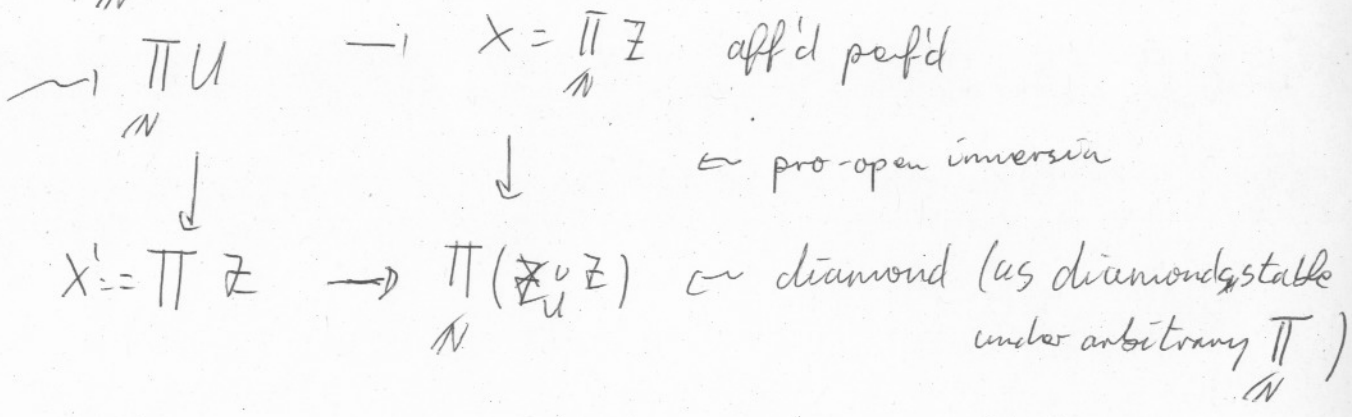 ∏_ℕ U → X = ∏_ℕ Z aff'd perf'd
↓ ↓ ← pro-open immersion
X' := ∏ Z → ∏_ℕ (Z ∪_U Z) ← diamond (as diamonds stable
under arbitrary ∏_ℕ)